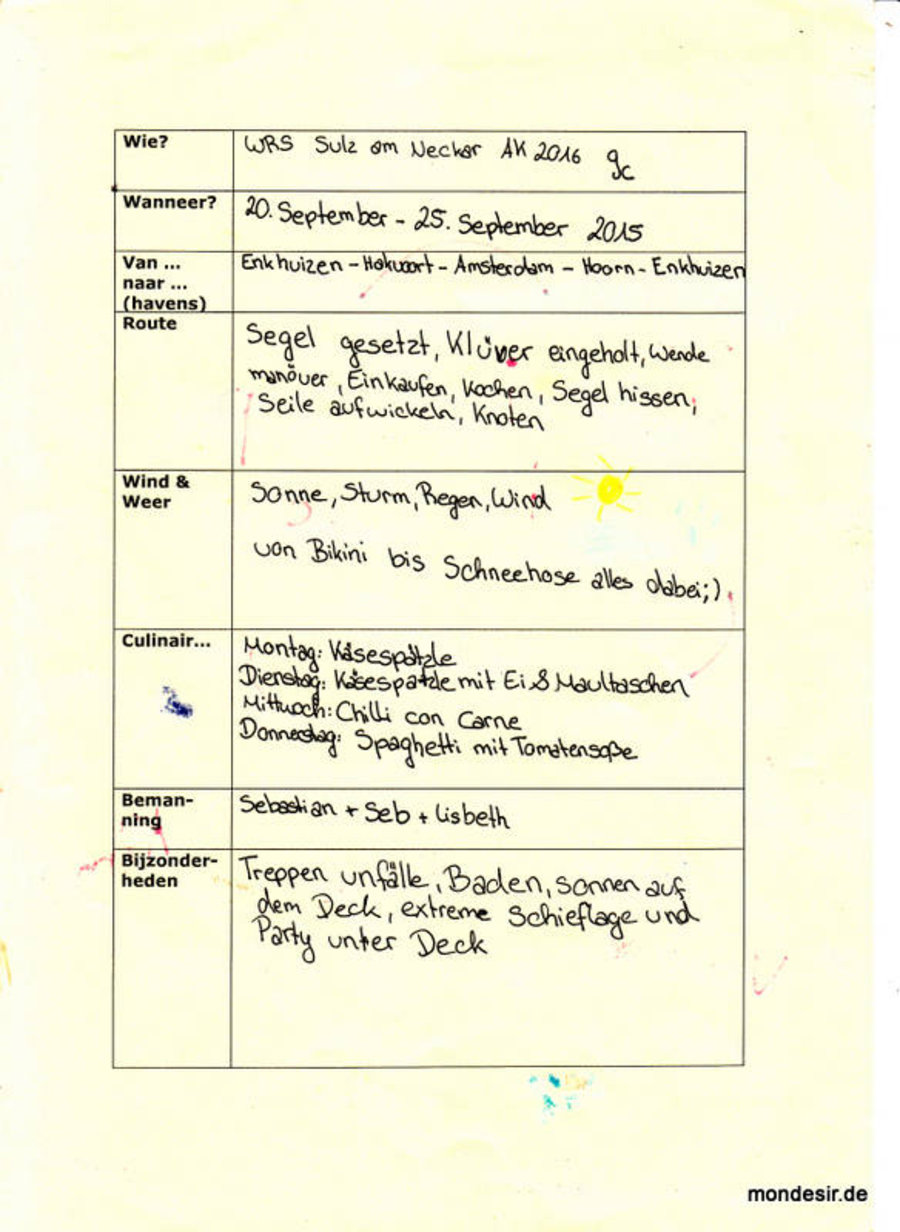 Wie? WRS Sulz am Neckar AK 2016 9c
Wanneer? 20. September - 25. September 2015
Van ... Enkhuizen - Hakvoort - Amsterdam - Hoorn - Enkhuizen
naar ...
(havens)
Route Segel gesetzt, Klüver eingeholt, Wende
manöver, Einkaufen, Kochen, Segel hissen,
Seile aufwickeln, Knoten
Wind & Sonne, Sturm, Regen, Wind
Weer
von Bikini bis Schneehose alles dabei;)
Culinair... Montag: Käsespätzle
Dienstag: Käsespätzle mit Ei & Maultaschen
Mittwoch: Chilli con Carne
Donnerstag: Spaghetti mit Tomatensoße
Beman- Sebastian + Seb + Lisbeth
ning
Bijzonder- Treppen unfälle, Baden, sonnen auf
heden dem Deck, extreme Schieflage und
Party unter Deck
mondesir.de